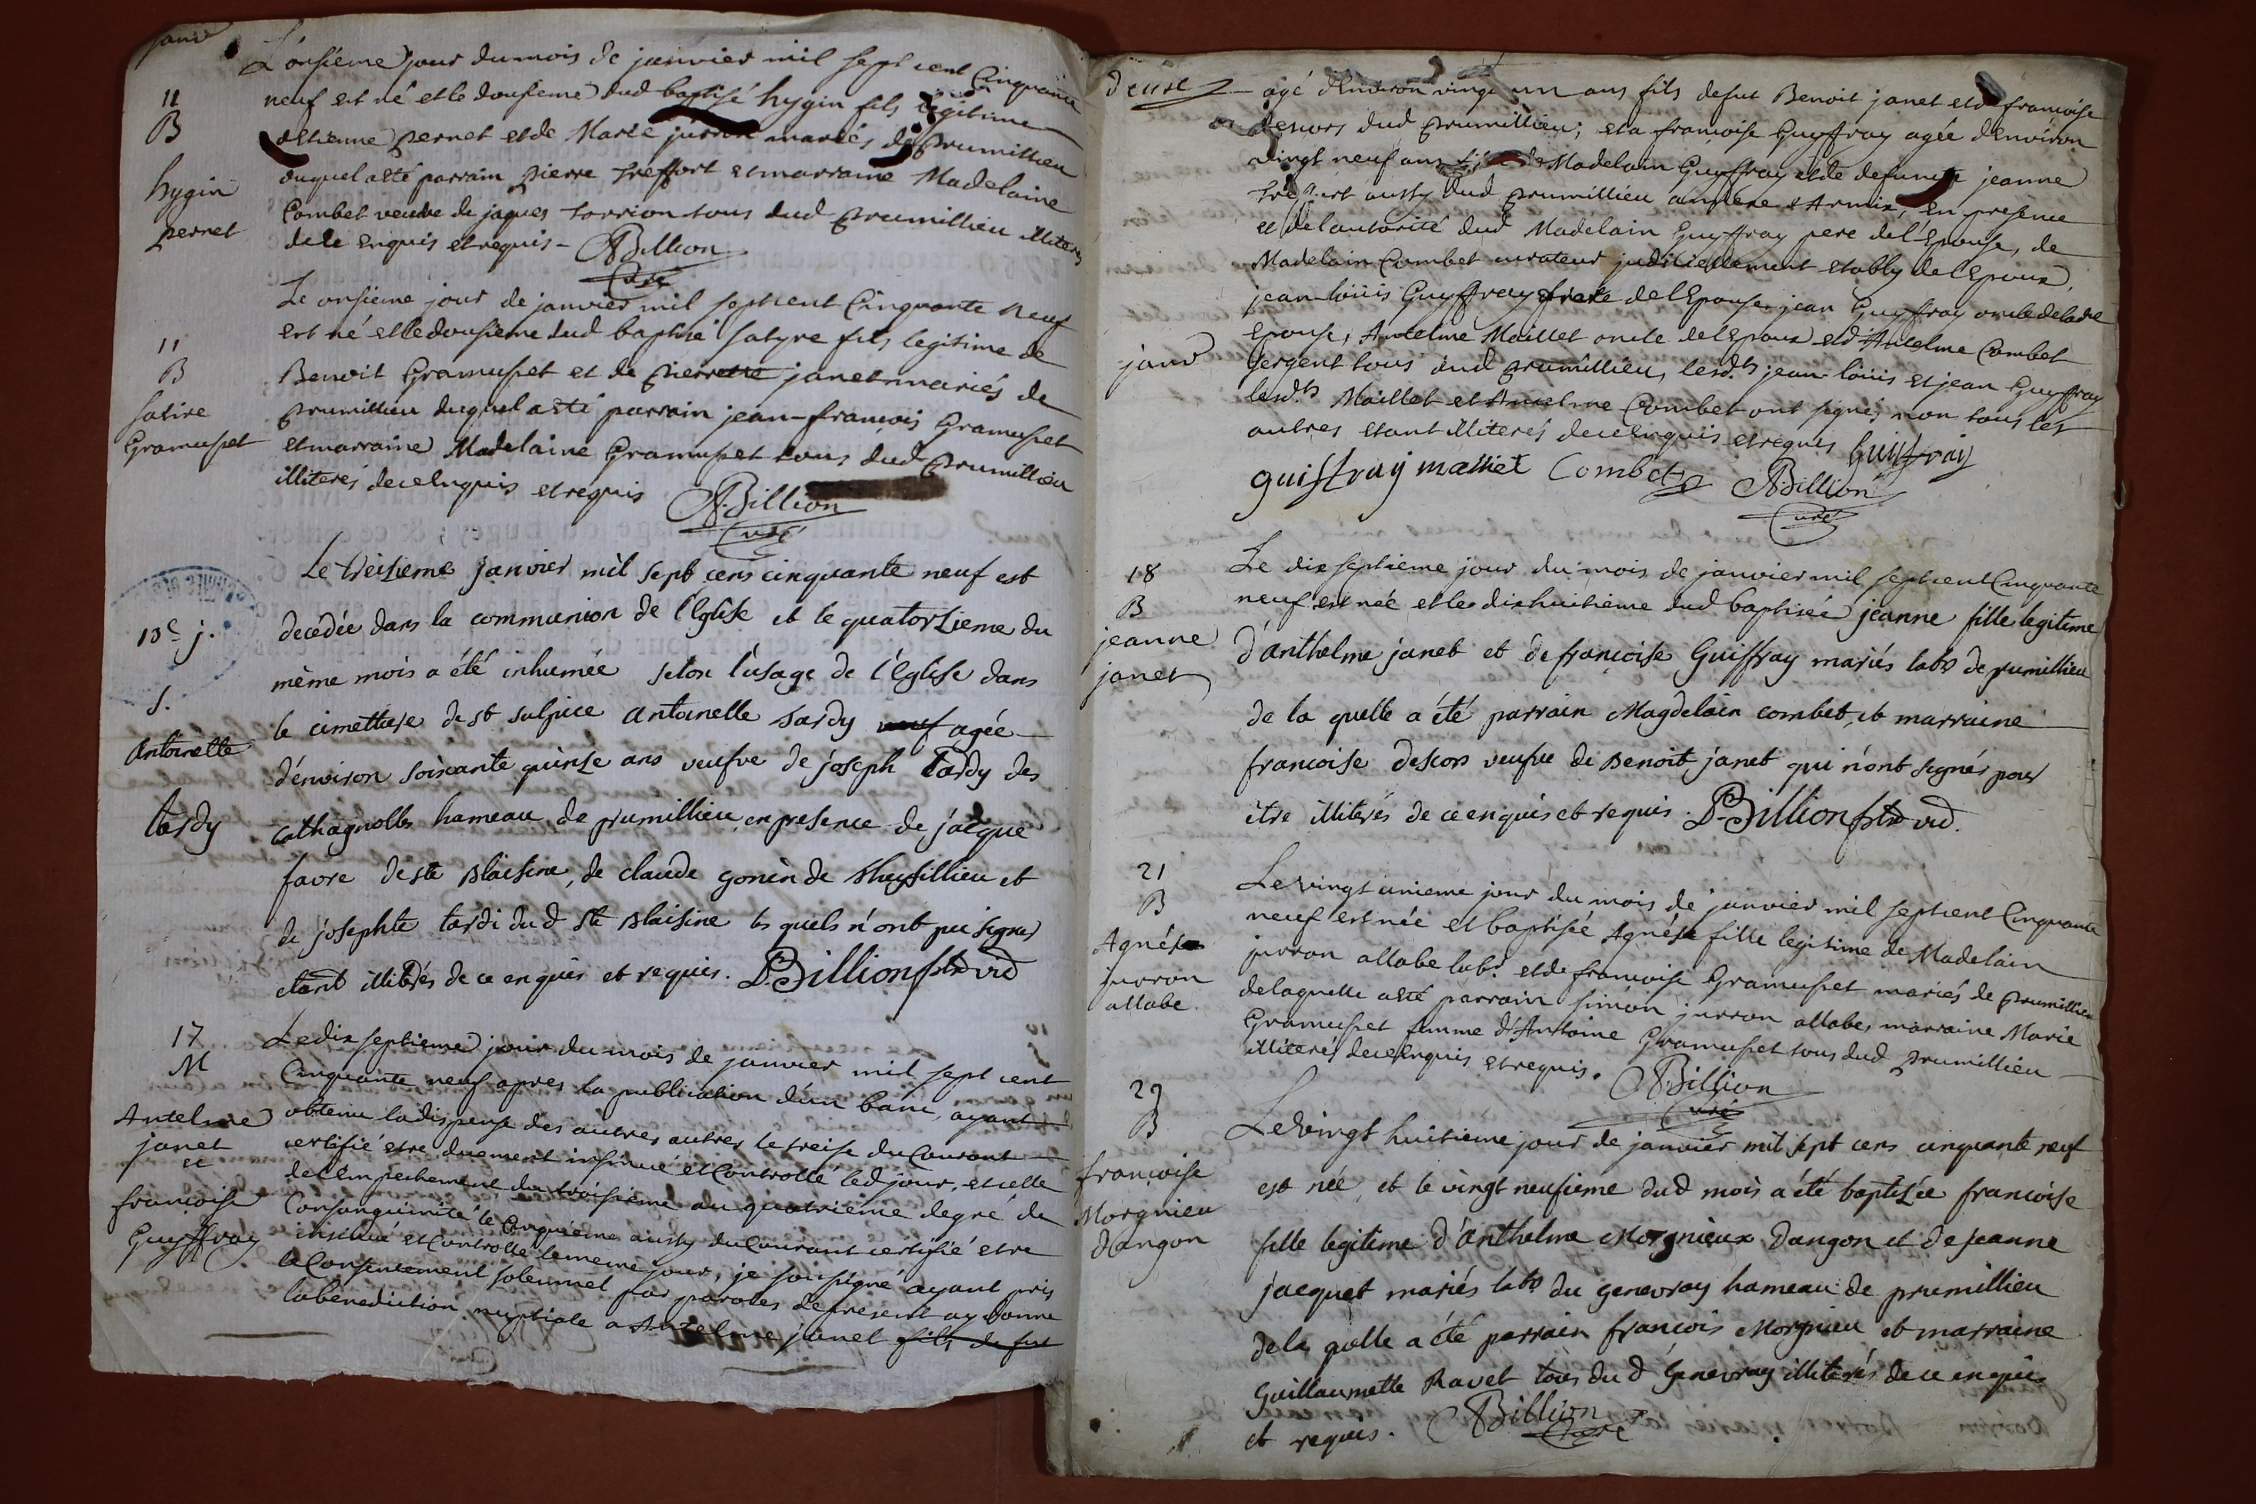 janv
L'onsiéme jour du mois de janvier mil sept cent Cinquante
neuf est né et le dousieme dud baptisé hygin fils légitime
d'etienne pernet et de Marie juron mariés de prumillieu
duquel a eté parrain pierre treffort et marraine Madelaine
Combet veuve de jaques torrion tous dud prumillieu illiterés
de ce enquis et requis - ABillion
Curé
11
B
hygin
pernet
Le onsieme jour de janvier mil sept cent Cinquante neuf
est né et le dousieme dud baptisé satyre fils legitime de
Benoit Gramuset et de pierrette janet mariés de
prumillieu duquel a eté parrain jean-francois Gramuset
et marraine Madelaine Gramuset tous dud prumillieu
illiterés de ce enquis et requis ABillion
Curé
11
B
satire
Gramuset
Le treisieme janvier mil sept cens cinquante neuf est
decédée dans la communion de l'Eglise et le quatorzieme du
même mois a été inhumée selon l'usage de l'Eglise dans
le cimettiere de st sulpice antoinette tardy neuf agée
d'environ soixante quinse ans veufve de joseph tardy des
cathagnolles hameau de prumillieu en presence de jacque
favre de ste Blaisine, de claude gonin de Meysillieu et
de josephte tardi dud ste Blaisine les quels n'ont pu signer
etant illiterés de ce enquis et requis. D.Billion ptre vic
13e j.
S.
Antoinette
tardy
Le dix septieme jour du mois de janvier mil sept cent
Cinquante neuf apres la publication d'un banc, ayant
obtenu la dispense des autres autres le treise du Courant
certifié etre duement insinué et Controllé led jour, et celle
de l'Empechement du troisieme au quatrieme degré de
Consanguinité le Cinquieme aussy du Courant certifié etre
insinué et Controllé le meme jour, je soussigné ayant pris
le Consentement solemnel par paroles de present ay donné
la benediction nuptiale a Antelme janet fils de fut
17
M
Antelme
janet
et
francoise
Guyffray
deuse
agé d'Environ vingt un ans fils de fut Benoit janet et de francoise
descors dud prumillieu; et a francoise Guyffray agée d'Environ
vingt neuf ans fille de Madelain Guyffray et de defunte jeanne
treffort aussy dud prumillieu en presence
et de l'autorité dud Madelain Guyffray pere de l'Epouse, de
Madelain Combet curateur judiciellement etably de l'Epoux,
jean-loüis Guyffray frere de l'Epouse, jean Guyffray oncle de lade
Epouse, Antelme Maillet oncle de l'Epoux et d'Antelme Combet
sergent tous dud prumillieu, lesd.ts jean-loüis et jean Guyffray
lesd.ts Maillet et Antelme Combet ont signé, non tous les
autres etant illiterés de ce enquis et requis Guiffray
guiffray malliet Combet ABillion
Curé
janv
Le dix septieme jour du mois de janvier mil sept cent Cinquante
neuf est née et le dixhuitieme dud baptisée jeanne fille legitime
d'anthelme janet et de francoise Guiffray mariés labrs de prumillieu
de la quelle a été parrain Magdelain combet, et marraine
francoise descors veufve de Benoit janet qui n'ont signés pour
être illiterés de ce enquis et requis. D.Billion ptre vic.
18
B
jeanne
janet
Le vingt unieme jour du mois de janvier mil sept cent Cinquante
neuf est née et baptisée Agnése fille legitime de Madelain
jurron allabe labr. et de francoise Gramuset mariés de prumillieu
de laquelle a eté parrain simon jurron allabe, marraine Marie
Gramuset femme d'Antoine Gramuset tous dud prumillieu
illiterés de ce enquis et requis. ABillion
Curé
21
B
Agnése
jurron
allabe
Le vingt huitieme jour de janvier mil sept cens cinquante neuf
est née, et le vingt neufieme dud mois a été baptisée francoise
fille legitime d'anthelme Morgnieux dangon et de jeanne
jacquet mariés labrs du genevray hameau de prumillieu
de la quelle a été parrain francois Morgnieu et marraine
Guillaumette Ravet tous dud genevray illiterés de ce enquis
et requis. ABillion
Curé
29
B
francoise
Morgnieu
dangon